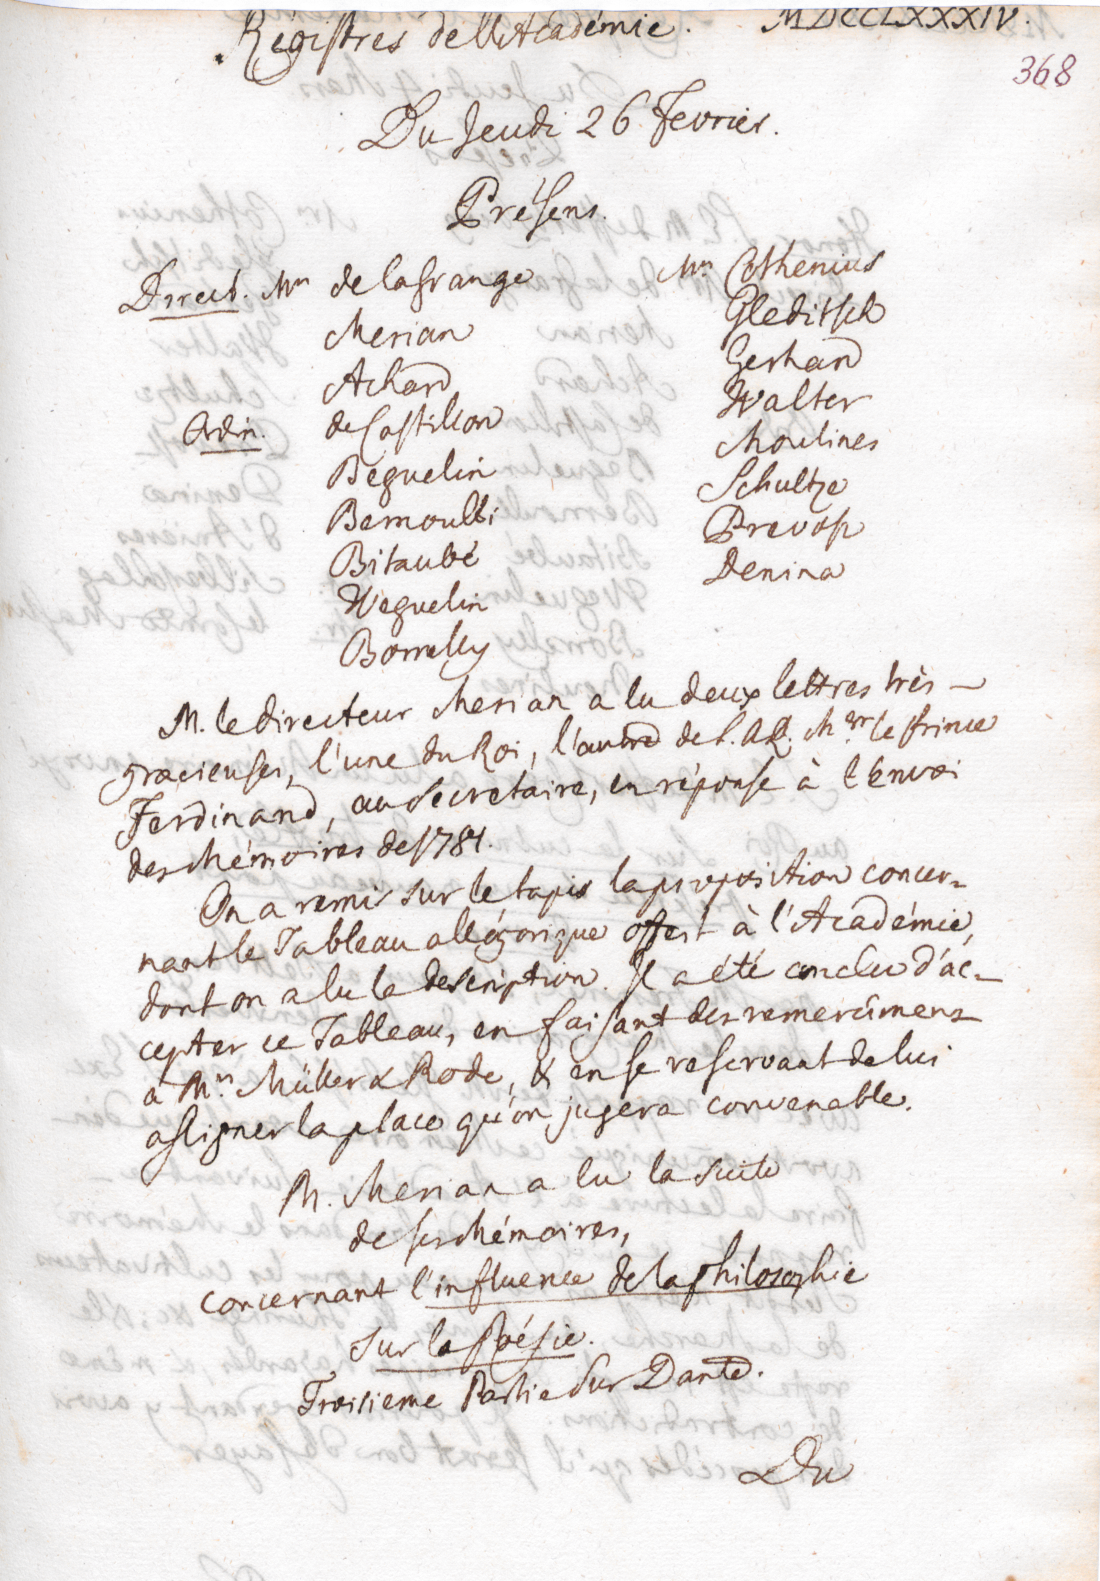 Régistres de l'Académie. MDCCLXXXIV.
368
Du Jeudi 26 Fevrier.
Présens.
Direct. Mrs de la Grange
Merian
Achard
Ordin. de Castillon
Beguelin
Bernoulli
Bitaubé
Weguelin
Borrelly
Mrs Cothenius
Gleditsch
Gerhard
Walter
Moulines
Schultze
Prevost
Denina
M. le directeur Merian a lu deux lettres très
gracieuses, l'une du Roi, l'autre de S. A. R. Mgr le Prince
Ferdinand, au Secretaire, en réponse à l'Envoi
des Mémoires de 1781.
On a remis sur le tapis la proposition concer-
nant le Tableau allégorique offert à l'Académie,
dont on a lu la description. Il a été conclu d'ac-
cepter ce Tableau, en faisant des remercîmens
à Mrs. Müller & Rode, & en se reservant de lui
assigner la place qu'on jugera convenable.
M. Merian a lu la suite
de ses Mémoires,
concernant l'influence de la philosophie
sur la Poésie.
Troisieme Partie sur Dante.
Du